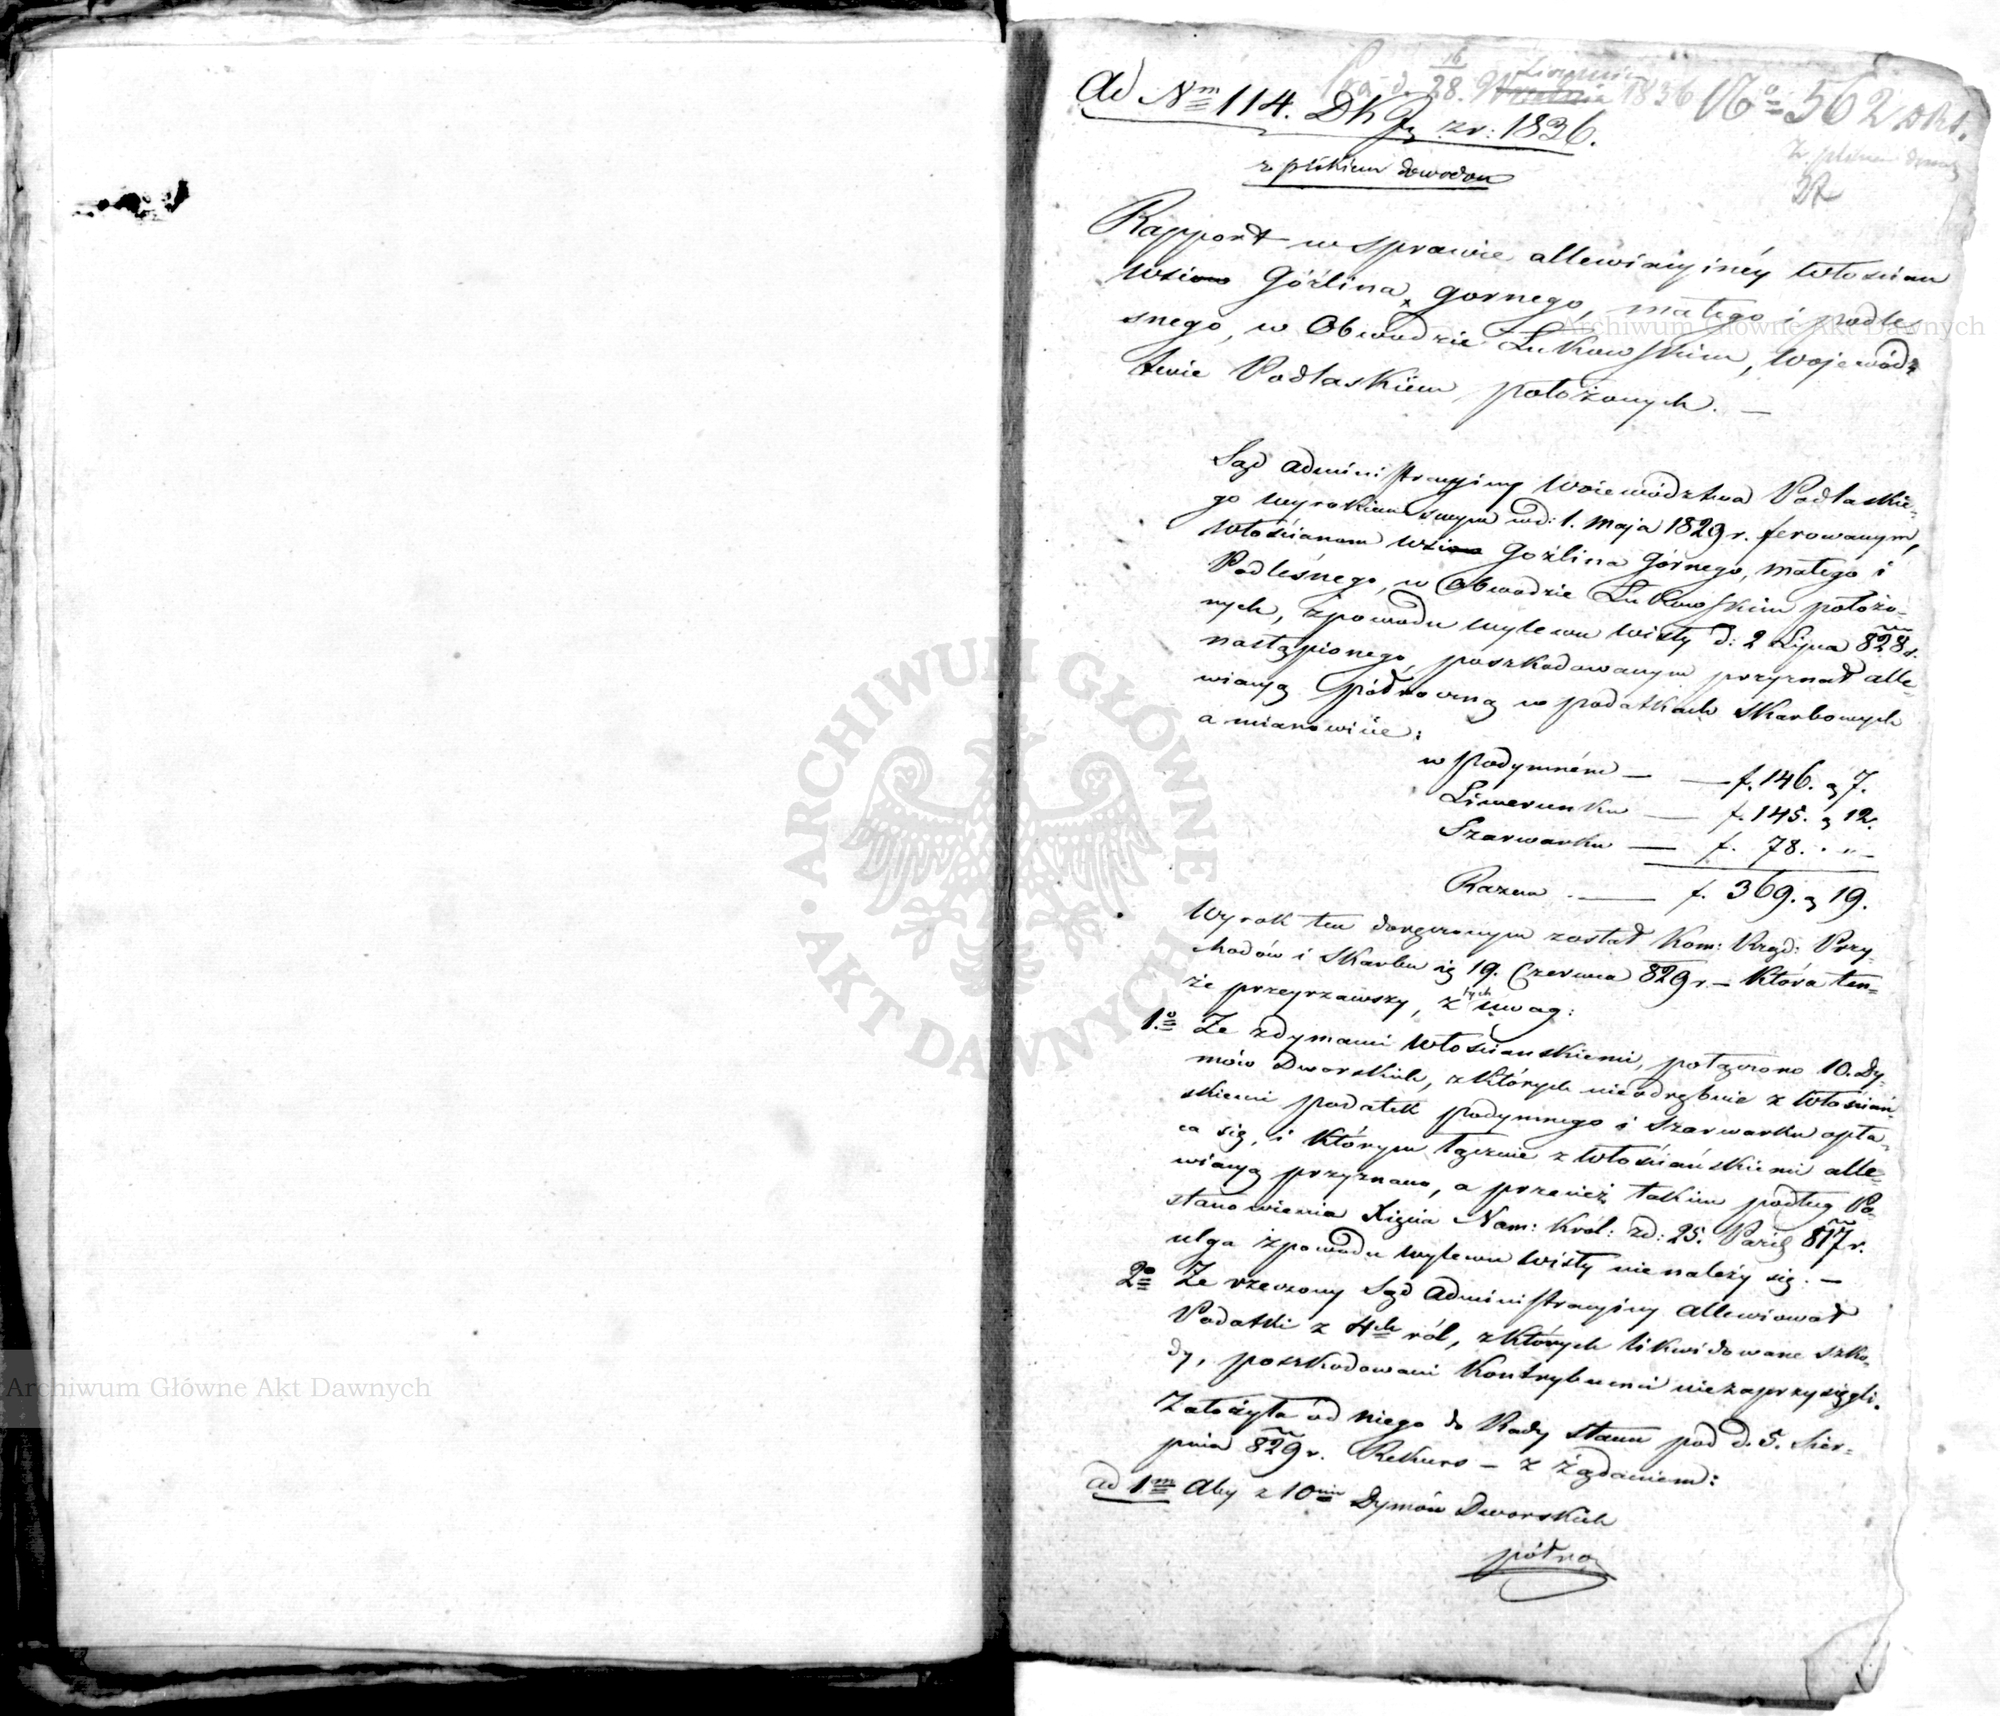 16 Czerwca
Pra d. 28. Września 1836 No 562 DKS.
Ad Nm 114. DKG z r: 1836.
z plikiem dowodow
z plikiem
Rapport w sprawie allewiacyinéy Włościan
Wsiow Góźlina gornego, małego i podle-
snego, w Obwodzie Łukowskim, Wojewódz-
twie Podlaskiem położonych. —
Sąd administracyiny Województwa Podlaskie-
go wyrokiem swym w d: 1. Maja 1829 r. ferowanym,
Włościanom Wsiow Goźlina Górnego, małego i
Podleśnego, w Obwodzie Łukowskim położo-
nych, z powodu wylewu Wisły d: 2 Lipca 828 r.
nastąpionego, poszkodowanym przyznał alle-
wiacyą półroczną w podatkach skarbowych
a mianowicie:
w podymném — — f. 146. g 7.
Liwerunku — f. 145. g 12.
Szarwarku — f. 78. . " —
Razem . — f. 369. g 19.
Wyrok ten doręczonym został Kom: Rząd: Przy-
chodów i Skarbu ig 19. Czerwca 829 r. — Która ten-
że przeyrzawszy, z tych uwag:
1o Że z dymami włościańskiemi, połączono 10. Dy-
mów Dworskich, z których nieodrębnie z włościań-
skiemi podatek podymnego i szarwarku opła-
ca się, i którym łącznie z włościańskiemi alle-
wiacyą przyznano, a przecież takim podług Po-
stanowienia Xięcia Nam: Król: z d: 25. Paźdz 817 r.
ulga z powodu wylewu Wisły nie należy się. —
2o Że rzeczony Sąd Administracyiny allewiował
Podatki z 4ch ról, z których likwidowane szko-
dy, poszkodowani Kontrybuenci niezaprzysięgli.
Założyła od niego do Rady Stanu pod d. 5. Sier-
pnia 829 r. Rekurs — z żądaniem:
ad 1m Aby z 10ciu Dymów Dworskich
półro
Archiwum Główne Akt Dawnych
Archiwum Główne Akt Dawnych
ARCHIWUM GŁÓWNE
AKT DAWNYCH